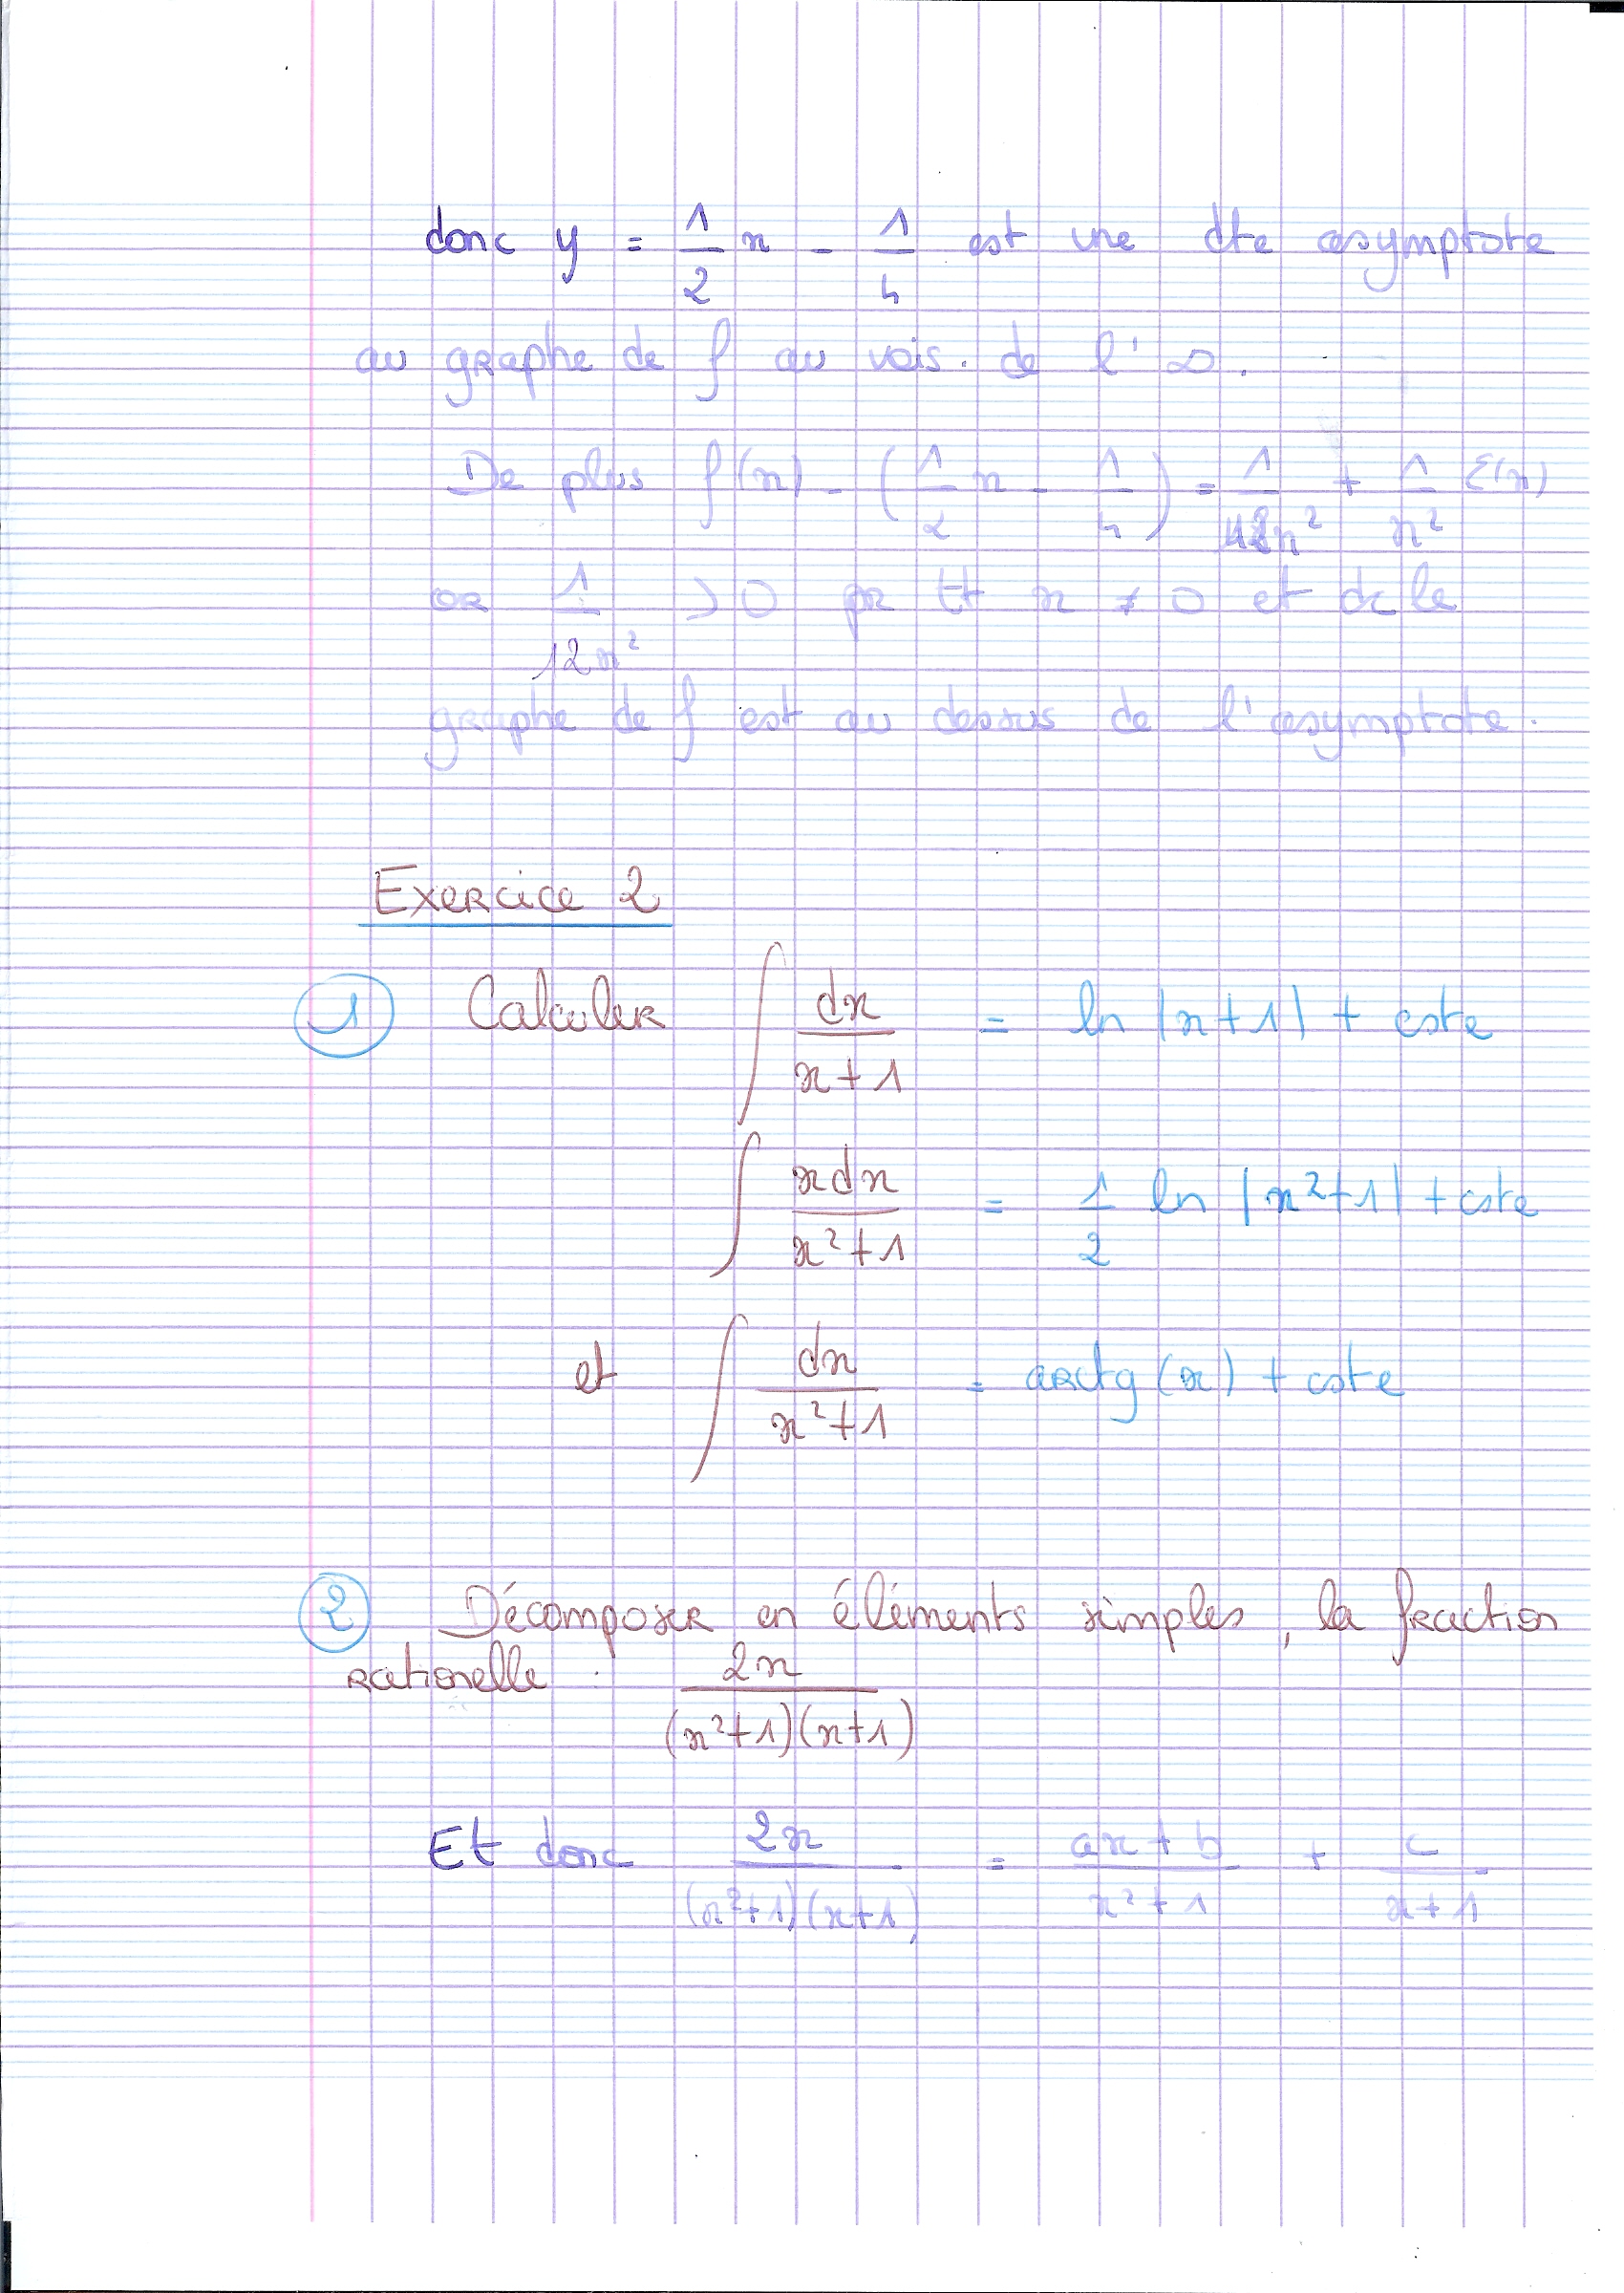 donc y = 1/2 x - 1/4 est une dte asymptote
au graphe de f au vois. de l'∞.
De plus f(x) - (1/2 x - 1/4) = 1/12x² + 1/x² ε(x)
or 1/12x² > 0 pr tt x ≠ 0 et dc le
graphe de f est au dessus de l'asymptote.
Exercice 2
① Calculer ∫ dx/(x+1) = ln |x+1| + cste
∫ xdx/(x²+1) = 1/2 ln |x²+1| + cste
et ∫ dx/(x²+1) = arctg (x) + cste
② Décomposer en éléments simples, la fraction
rationelle : 2x/((x²+1)(x+1))
Et donc 2x/((x²+1)(x+1)) = (ax+b)/(x²+1) + c/(x+1)